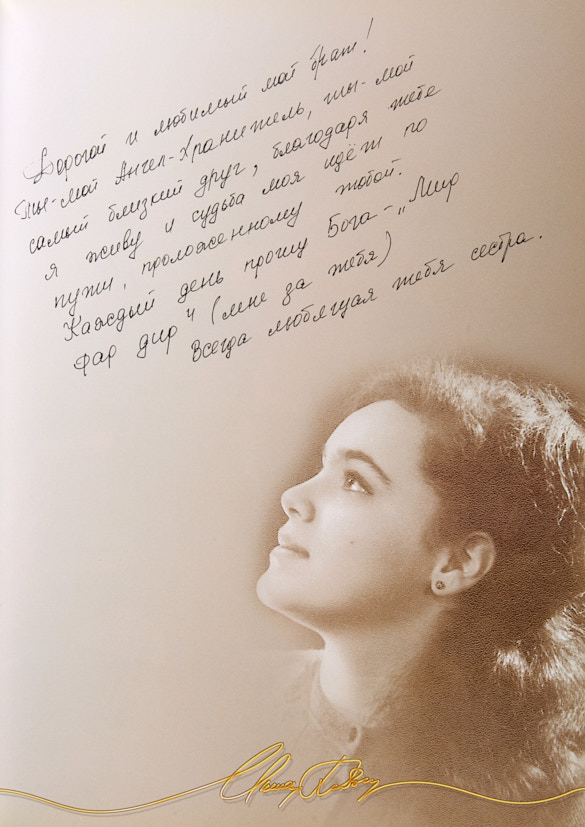 Дорогой и любимый мой брат!
Ты-мой Ангел-Хранитель, ты-мой
самый близкий друг, благодаря тебе
я живу и судьба моя идёт по
пути, проложенному тобой.
Каждый день прошу Бога-„Мир
фар дир“ (мне за тебя)
Всегда любящая тебя сестра.